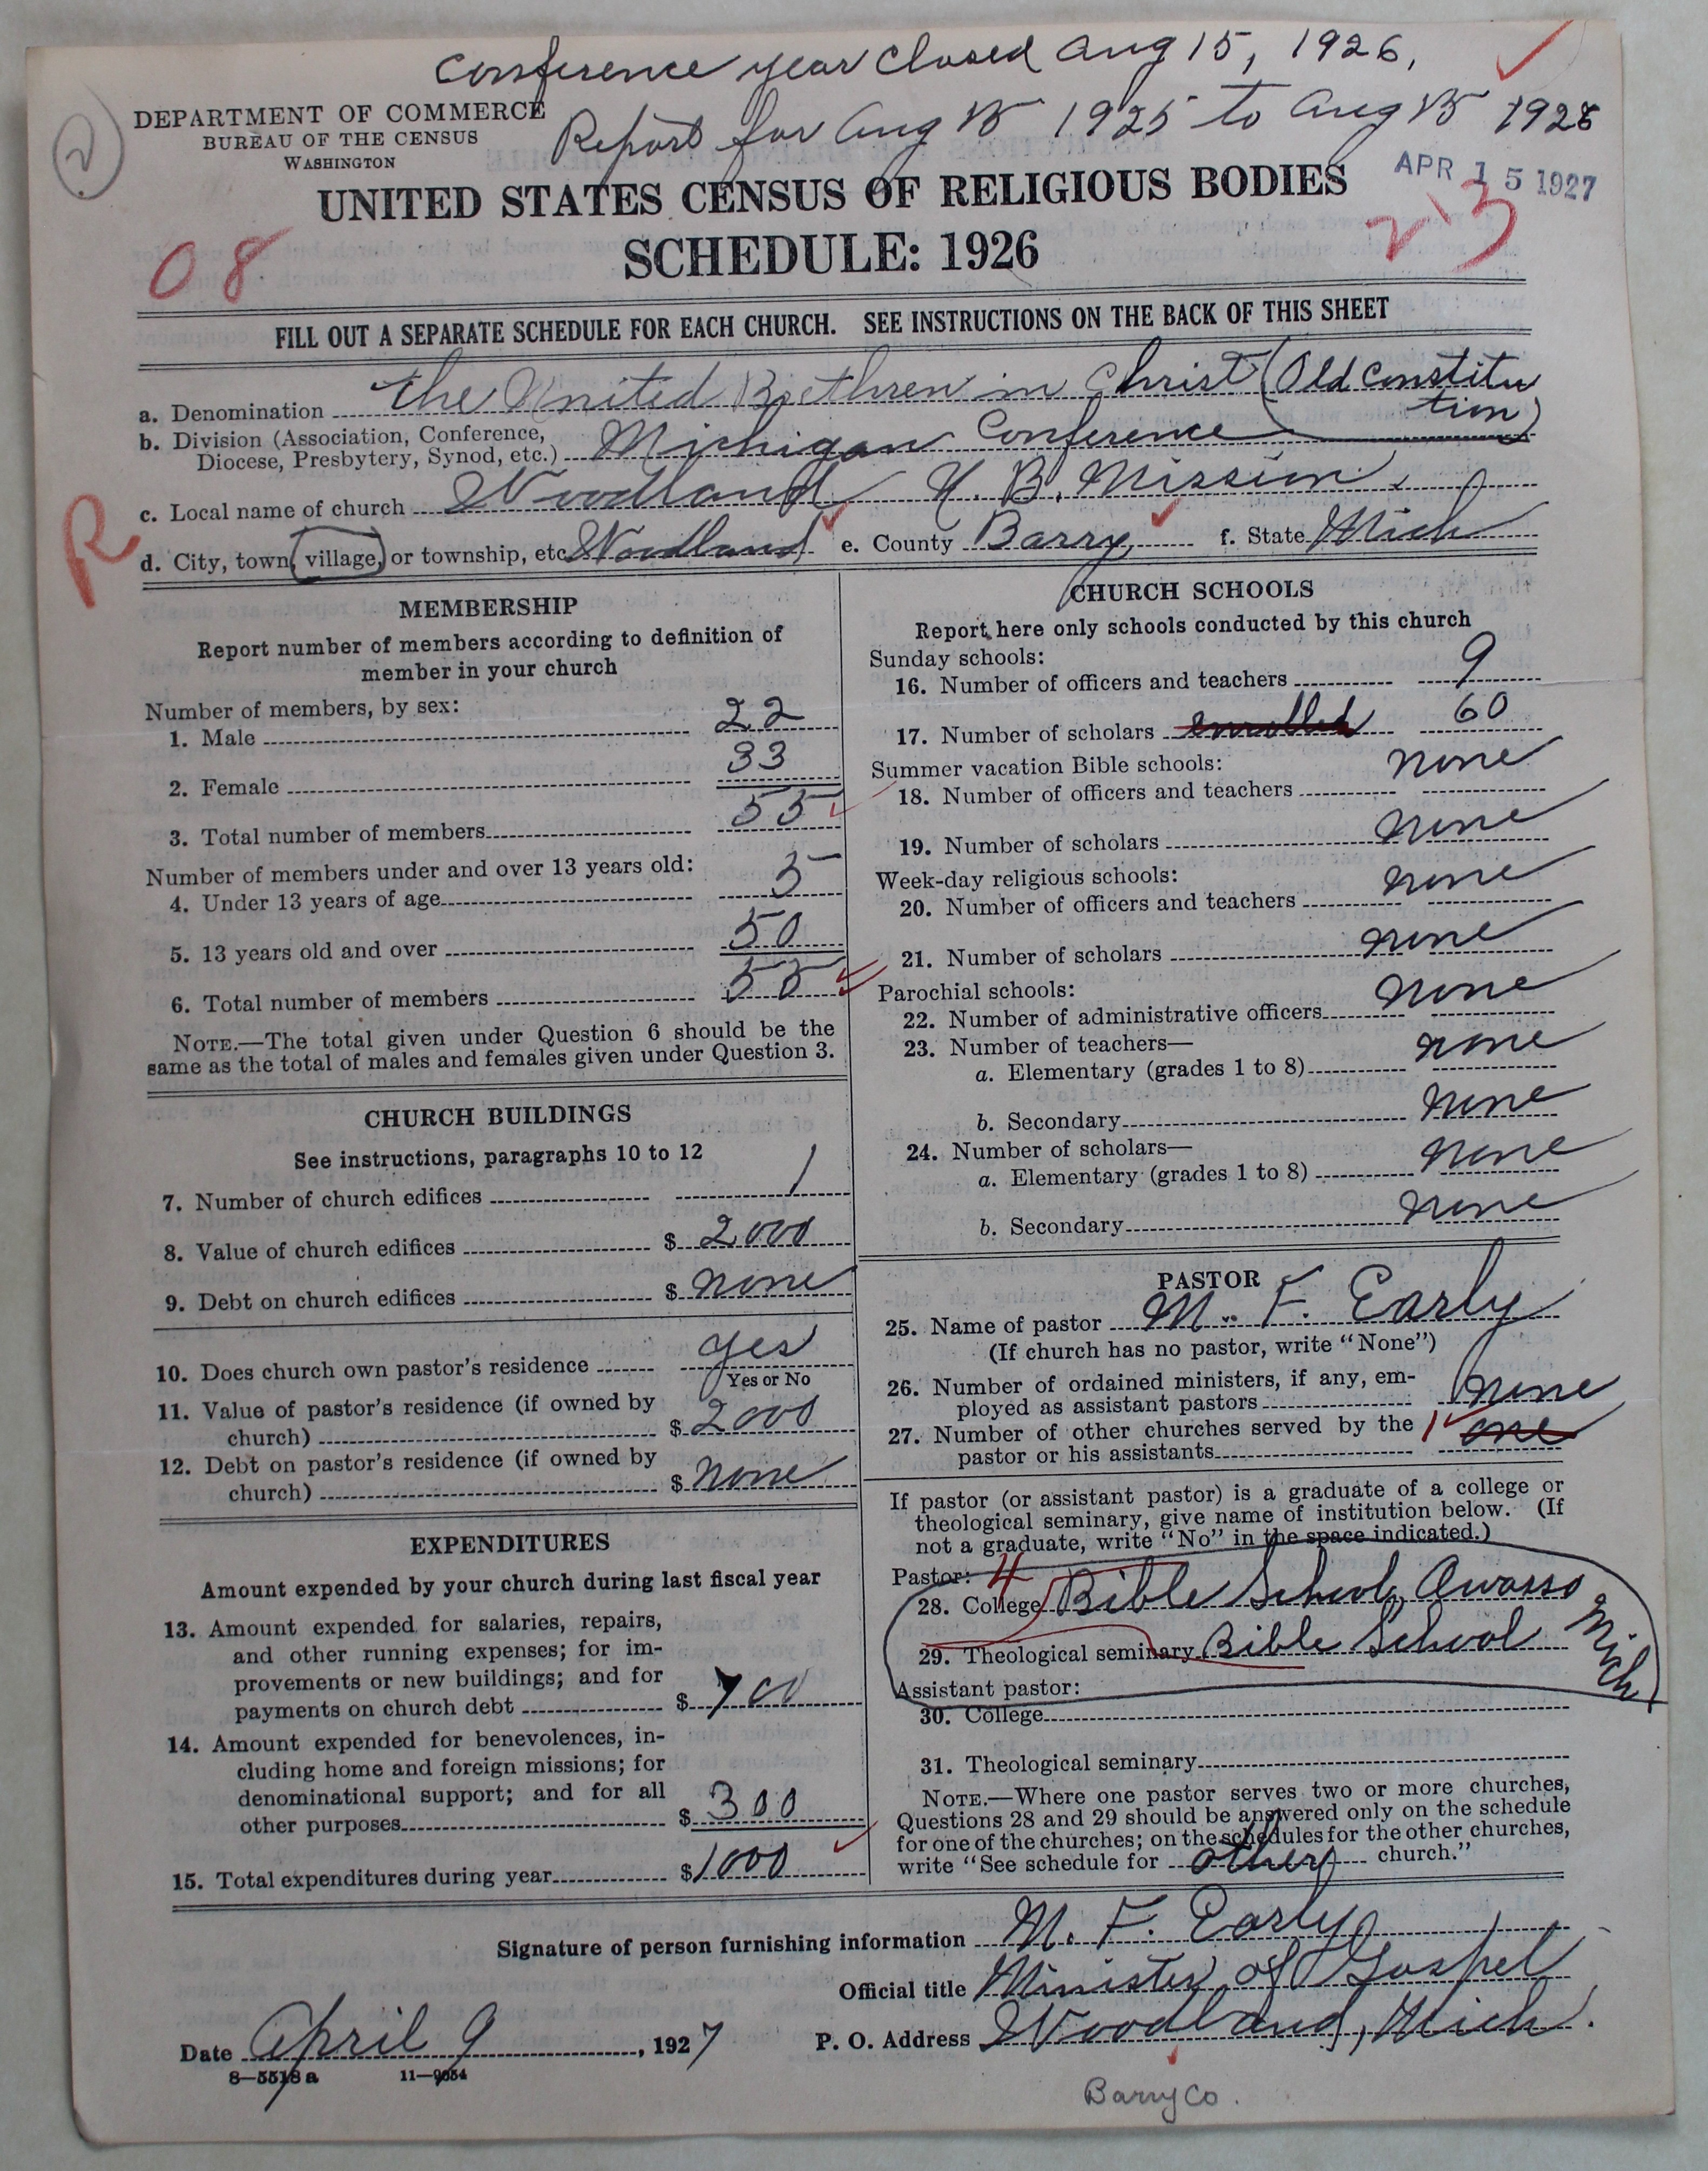 Conference year Closed Aug 15, 1926,
Report for Aug 15 1925 to Aug 15 1926
2
DEPARTMENT OF COMMERCE
BUREAU OF THE CENSUS
WASHINGTON
APR 15 1927
UNITED STATES CENSUS OF RELIGIOUS BODIES
SCHEDULE: 1926
08
2-13
FILL OUT A SEPARATE SCHEDULE FOR EACH CHURCH. SEE INSTRUCTIONS ON THE BACK OF THIS SHEET
a. Denomination The United Brethren in Christ (Old Constitu
tion)
b. Division (Association, Conference,
Diocese, Presbytery, Synod, etc.) Michigan Conference
c. Local name of church Woodland U. B. Mission.
R
d. City, town, village, or township, etc. Woodland e. County Barry f. State Mich
MEMBERSHIP
Report number of members according to definition of
member in your church
Number of members, by sex:
1. Male 22
2. Female 33
3. Total number of members 55
Number of members under and over 13 years old:
4. Under 13 years of age 5
5. 13 years old and over 50
6. Total number of members 55
NOTE.—The total given under Question 6 should be the
same as the total of males and females given under Question 3.
CHURCH BUILDINGS
See instructions, paragraphs 10 to 12
7. Number of church edifices 1
8. Value of church edifices $ 2000
9. Debt on church edifices $ none
10. Does church own pastor's residence yes
Yes or No
11. Value of pastor's residence (if owned by
church) $ 2000
12. Debt on pastor's residence (if owned by
church) $ none
EXPENDITURES
Amount expended by your church during last fiscal year
13. Amount expended for salaries, repairs,
and other running expenses; for im-
provements or new buildings; and for
payments on church debt $ 700
14. Amount expended for benevolences, in-
cluding home and foreign missions; for
denominational support; and for all
other purposes $ 300
15. Total expenditures during year $ 1000
CHURCH SCHOOLS
Report here only schools conducted by this church
Sunday schools:
16. Number of officers and teachers 9
17. Number of scholars enrolled 60
Summer vacation Bible schools:
18. Number of officers and teachers none
19. Number of scholars none
Week-day religious schools:
20. Number of officers and teachers none
21. Number of scholars none
Parochial schools:
22. Number of administrative officers none
23. Number of teachers—
a. Elementary (grades 1 to 8) none
b. Secondary none
24. Number of scholars—
a. Elementary (grades 1 to 8) none
b. Secondary none
PASTOR
25. Name of pastor M. F. Early
(If church has no pastor, write "None")
26. Number of ordained ministers, if any, em-
ployed as assistant pastors none
27. Number of other churches served by the
pastor or his assistants 1 one
If pastor (or assistant pastor) is a graduate of a college or
theological seminary, give name of institution below. (If
not a graduate, write "No" in the space indicated.)
Pastor: 4
28. College Bible School, Owosso Mich
29. Theological seminary Bible School
Assistant pastor:
30. College
31. Theological seminary
NOTE.—Where one pastor serves two or more churches,
Questions 28 and 29 should be answered only on the schedule
for one of the churches; on the schedules for the other churches,
write "See schedule for other church."
Signature of person furnishing information M. F. Early
Official title Minister of Gospel
Date April 9, 1927 P. O. Address Woodland, Mich.
8—5518a 11—9054
Barry Co.